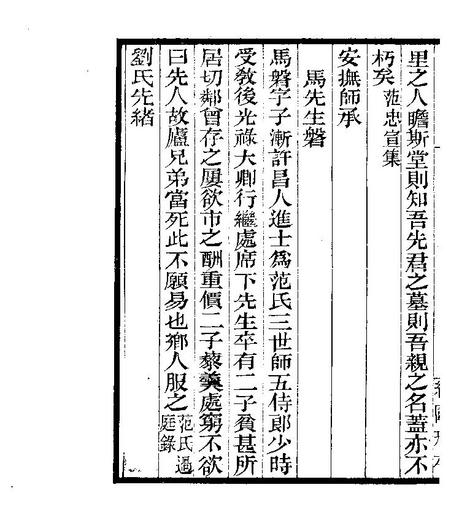 里之人瞻斯堂則知吾先君之墓則吾親之名蓋亦不
朽矣范忠宣集
安撫師承
馬先生磐
馬磐字子漸許昌人進士爲范氏三世師五侍郎少時
受敎後光祿大卿行繼處席下先生卒有二子貧甚所
居切鄰曾存之屢欲市之酬重價二子藜羹處窮不欲
曰先人故廬兄弟當死此不願易也鄉人服之范氏過庭錄
劉氏先緒